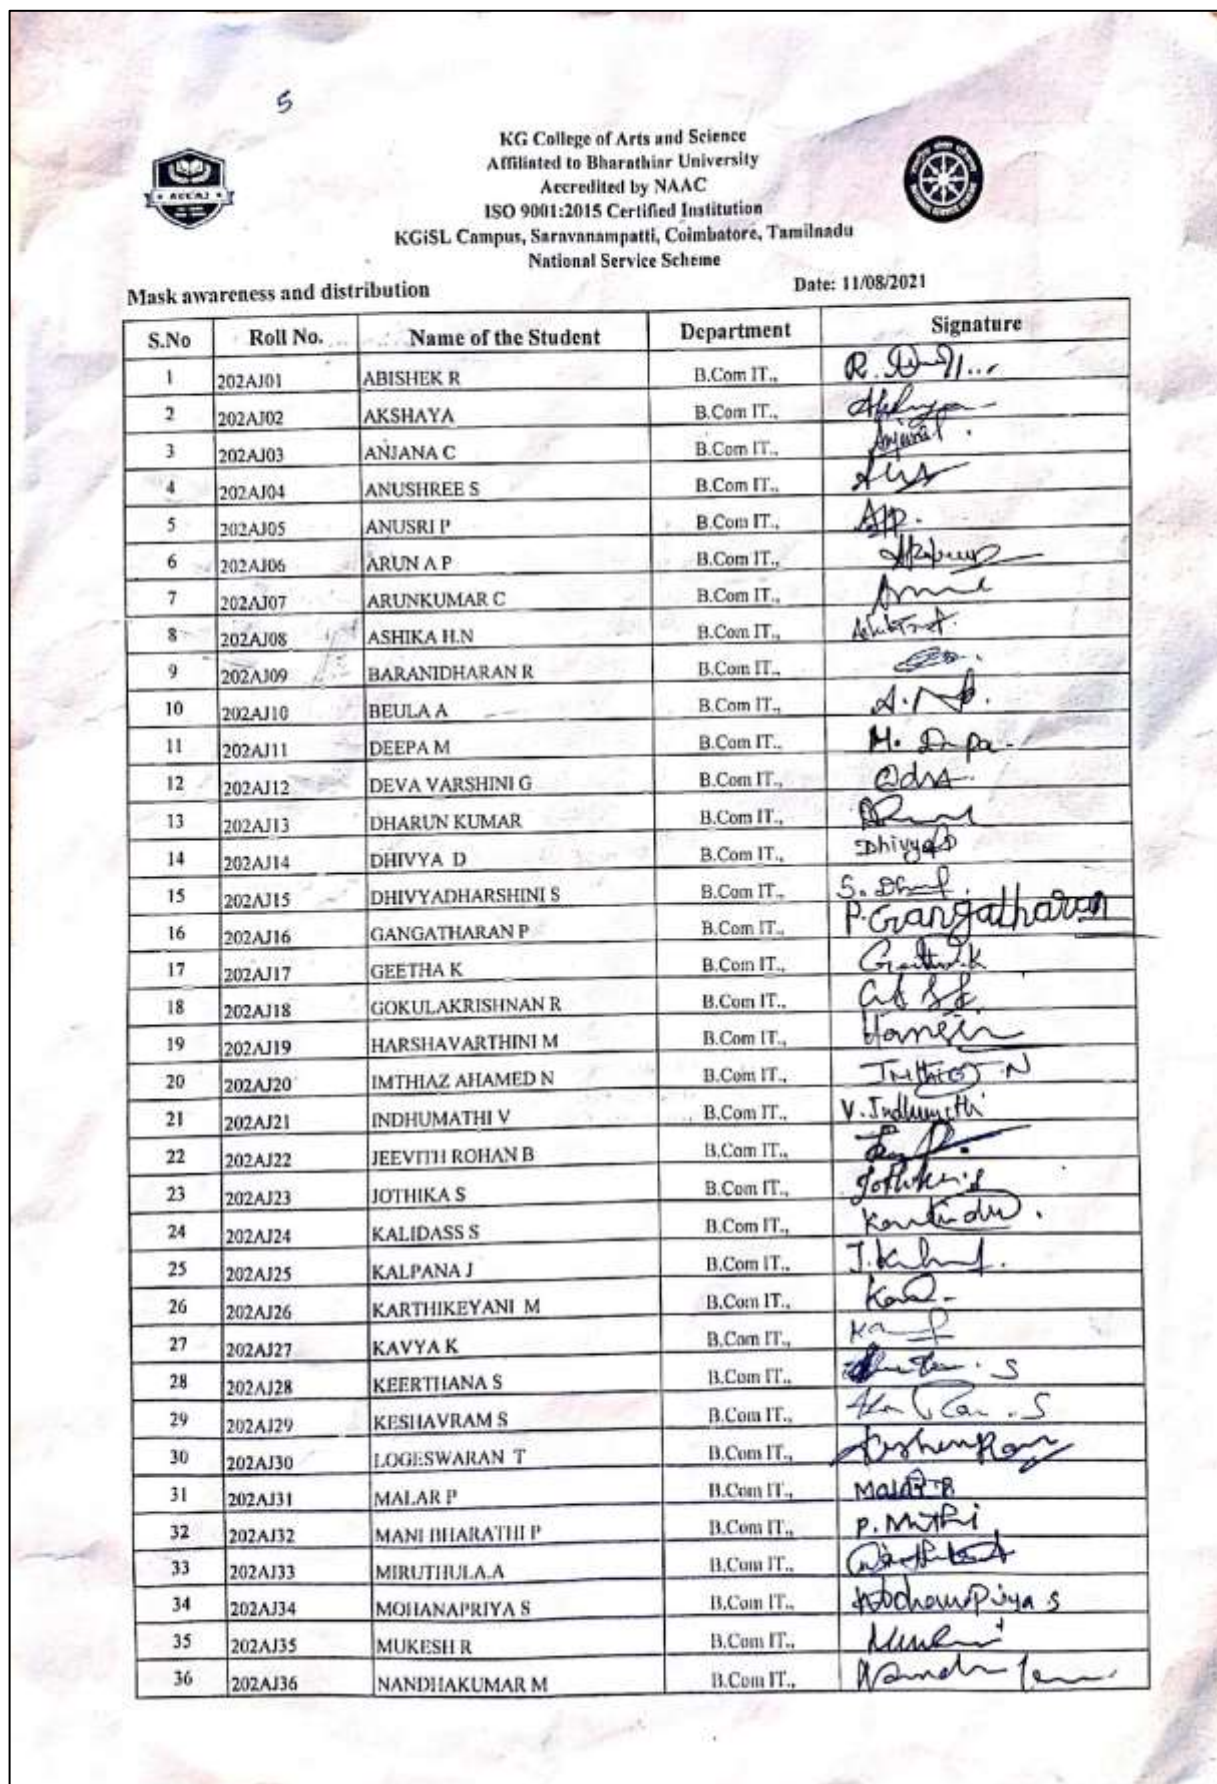 5
KG College of Arts and Science
Affiliated to Bharathiar University
Accredited by NAAC
ISO 9001:2015 Certified Institution
KGiSL Campus, Saravanampatti, Coimbatore, Tamilnadu
National Service Scheme
Mask awareness and distribution Date: 11/08/2021
S.No Roll No. Name of the Student Department Signature
1 202AJ01 ABISHEK R B.Com IT., R.
2 202AJ02 AKSHAYA B.Com IT.,
3 202AJ03 ANJANA C B.Com IT.,
4 202AJ04 ANUSHREE S B.Com IT.,
5 202AJ05 ANUSRI P B.Com IT.,
6 202AJ06 ARUN A P B.Com IT.,
7 202AJ07 ARUNKUMAR C B.Com IT.,
8 202AJ08 ASHIKA H.N B.Com IT.,
9 202AJ09 BARANIDHARAN R B.Com IT.,
10 202AJ10 BEULA A B.Com IT.,
11 202AJ11 DEEPA M B.Com IT., M.
12 202AJ12 DEVA VARSHINI G B.Com IT.,
13 202AJ13 DHARUN KUMAR B.Com IT.,
14 202AJ14 DHIVYA D B.Com IT., Dhivya D
15 202AJ15 DHIVYADHARSHINI S B.Com IT., S.
16 202AJ16 GANGATHARAN P B.Com IT., P. Gangatharan
17 202AJ17 GEETHA K B.Com IT., Geetha.K
18 202AJ18 GOKULAKRISHNAN R B.Com IT.,
19 202AJ19 HARSHAVARTHINI M B.Com IT.,
20 202AJ20 IMTHIAZ AHAMED N B.Com IT.,
21 202AJ21 INDHUMATHI V B.Com IT., V. Indhumathi
22 202AJ22 JEEVITH ROHAN B B.Com IT.,
23 202AJ23 JOTHIKA S B.Com IT.,
24 202AJ24 KALIDASS S B.Com IT.,
25 202AJ25 KALPANA J B.Com IT.,
26 202AJ26 KARTHIKEYANI M B.Com IT.,
27 202AJ27 KAVYA K B.Com IT.,
28 202AJ28 KEERTHANA S B.Com IT.,
29 202AJ29 KESHAVRAM S B.Com IT.,
30 202AJ30 LOGESWARAN T B.Com IT.,
31 202AJ31 MALAR P B.Com IT., Malar P
32 202AJ32 MANI BHARATHI P B.Com IT.,
33 202AJ33 MIRUTHULA.A B.Com IT.,
34 202AJ34 MOHANAPRIYA S B.Com IT.,
35 202AJ35 MUKESH R B.Com IT.,
36 202AJ36 NANDHAKUMAR M B.Com IT.,